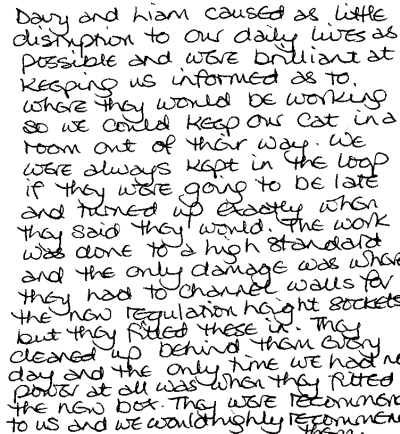 Davy and Liam caused as little
disruption to our daily lives as
possible and were brilliant at
keeping us informed as to.
where they would be working
so we could keep our cat in a
room out of their way. We
were always kept in the loop
if they were going to be late
and turned up exactly when
they said they would. The work
was done to a high standard
and the only damage was where
they had to channel walls for
the new regulation height sockets
but they filled these in. They
cleaned up behind them every
day and the only time we had no
power at all was when they fitted
the new box. They were recommen
to us and we would highly recommen
them.